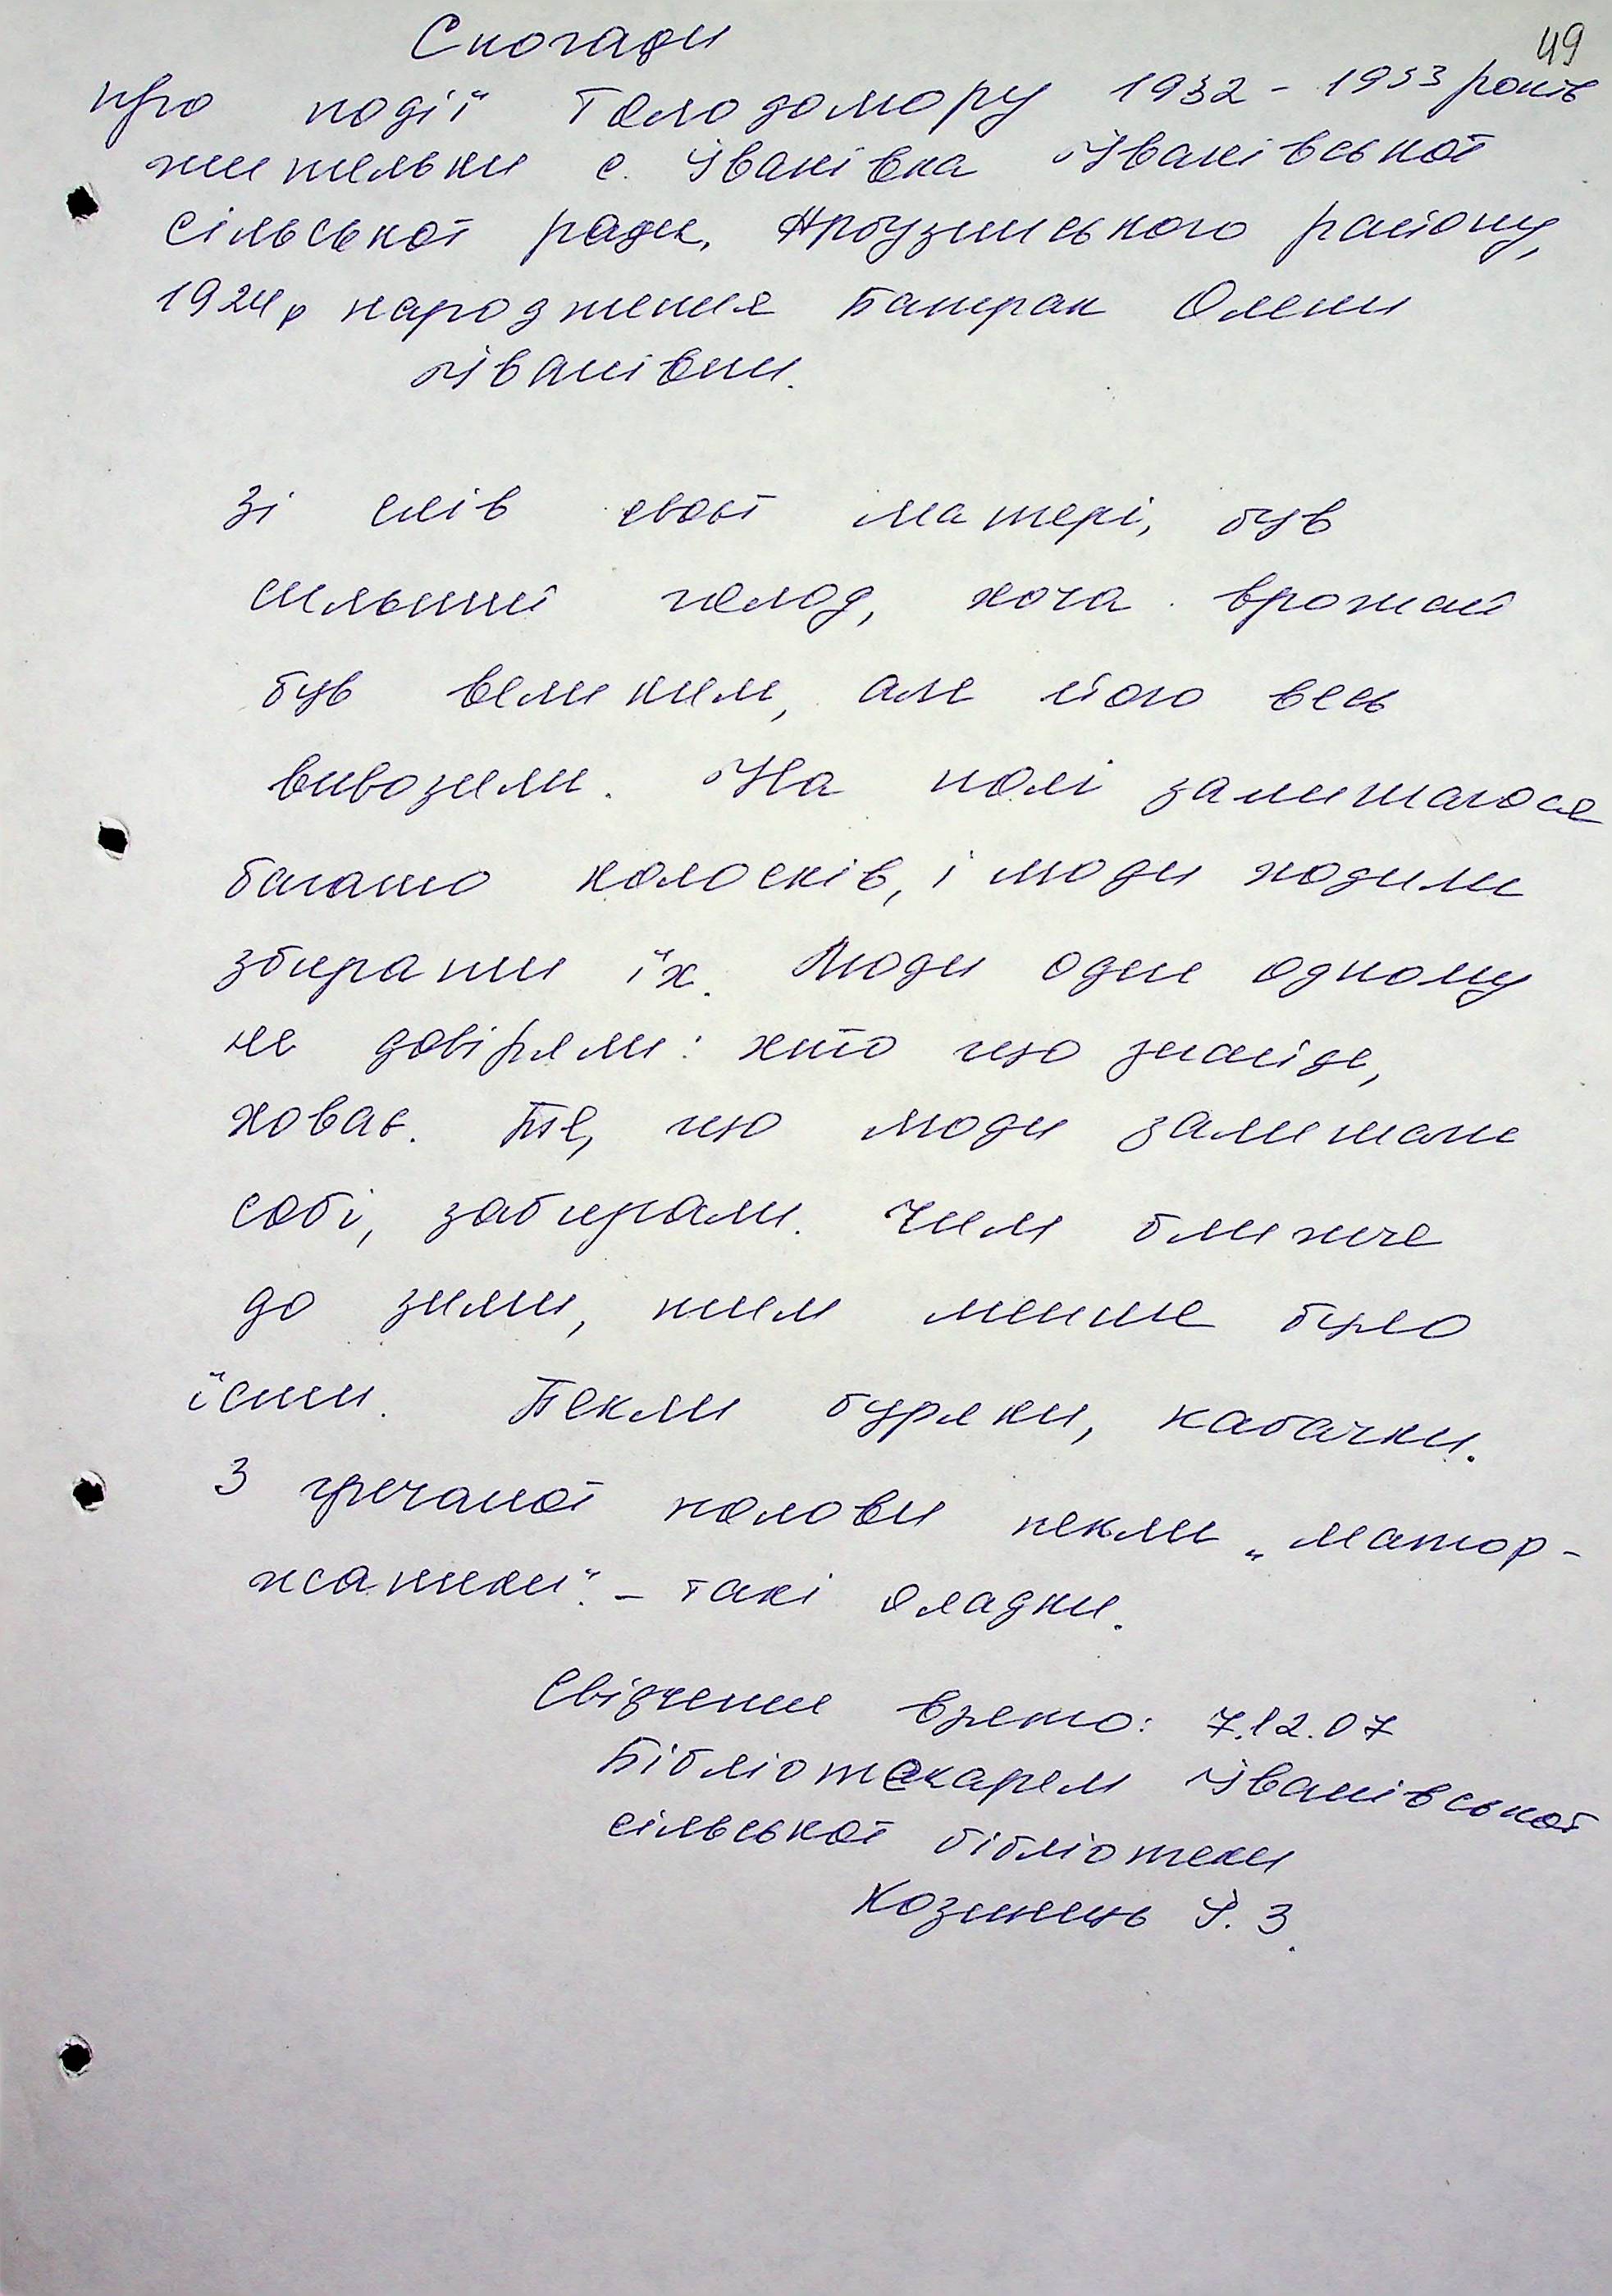 49
Спогади
про події Голодомору 1932 - 1933 років
жительки с. Іванівка Іванівської
сільської ради, Яроузинського району,
1924 р народження Батрак Олени
Іванівни.
Зі слів своєї матері, був
сильний голод, хоча врожай
був великим, але його весь
вивозили. На полі залишалося
багато колосків, і люди ходили
збирати їх. Люди один одному
не довіряли: хто що знайде,
ховає. Те, що люди залишали
собі, забирали. Чим ближче
до зими, тим менше було
їсти. Пекли буряки, кабачки.
З гречаної полови пекли „матор-
жаники". – такі оладки.
Свідчення взято: 7.12.07
Бібліотекарем Іванівської
сільської бібліотеки
Козинець І. З.